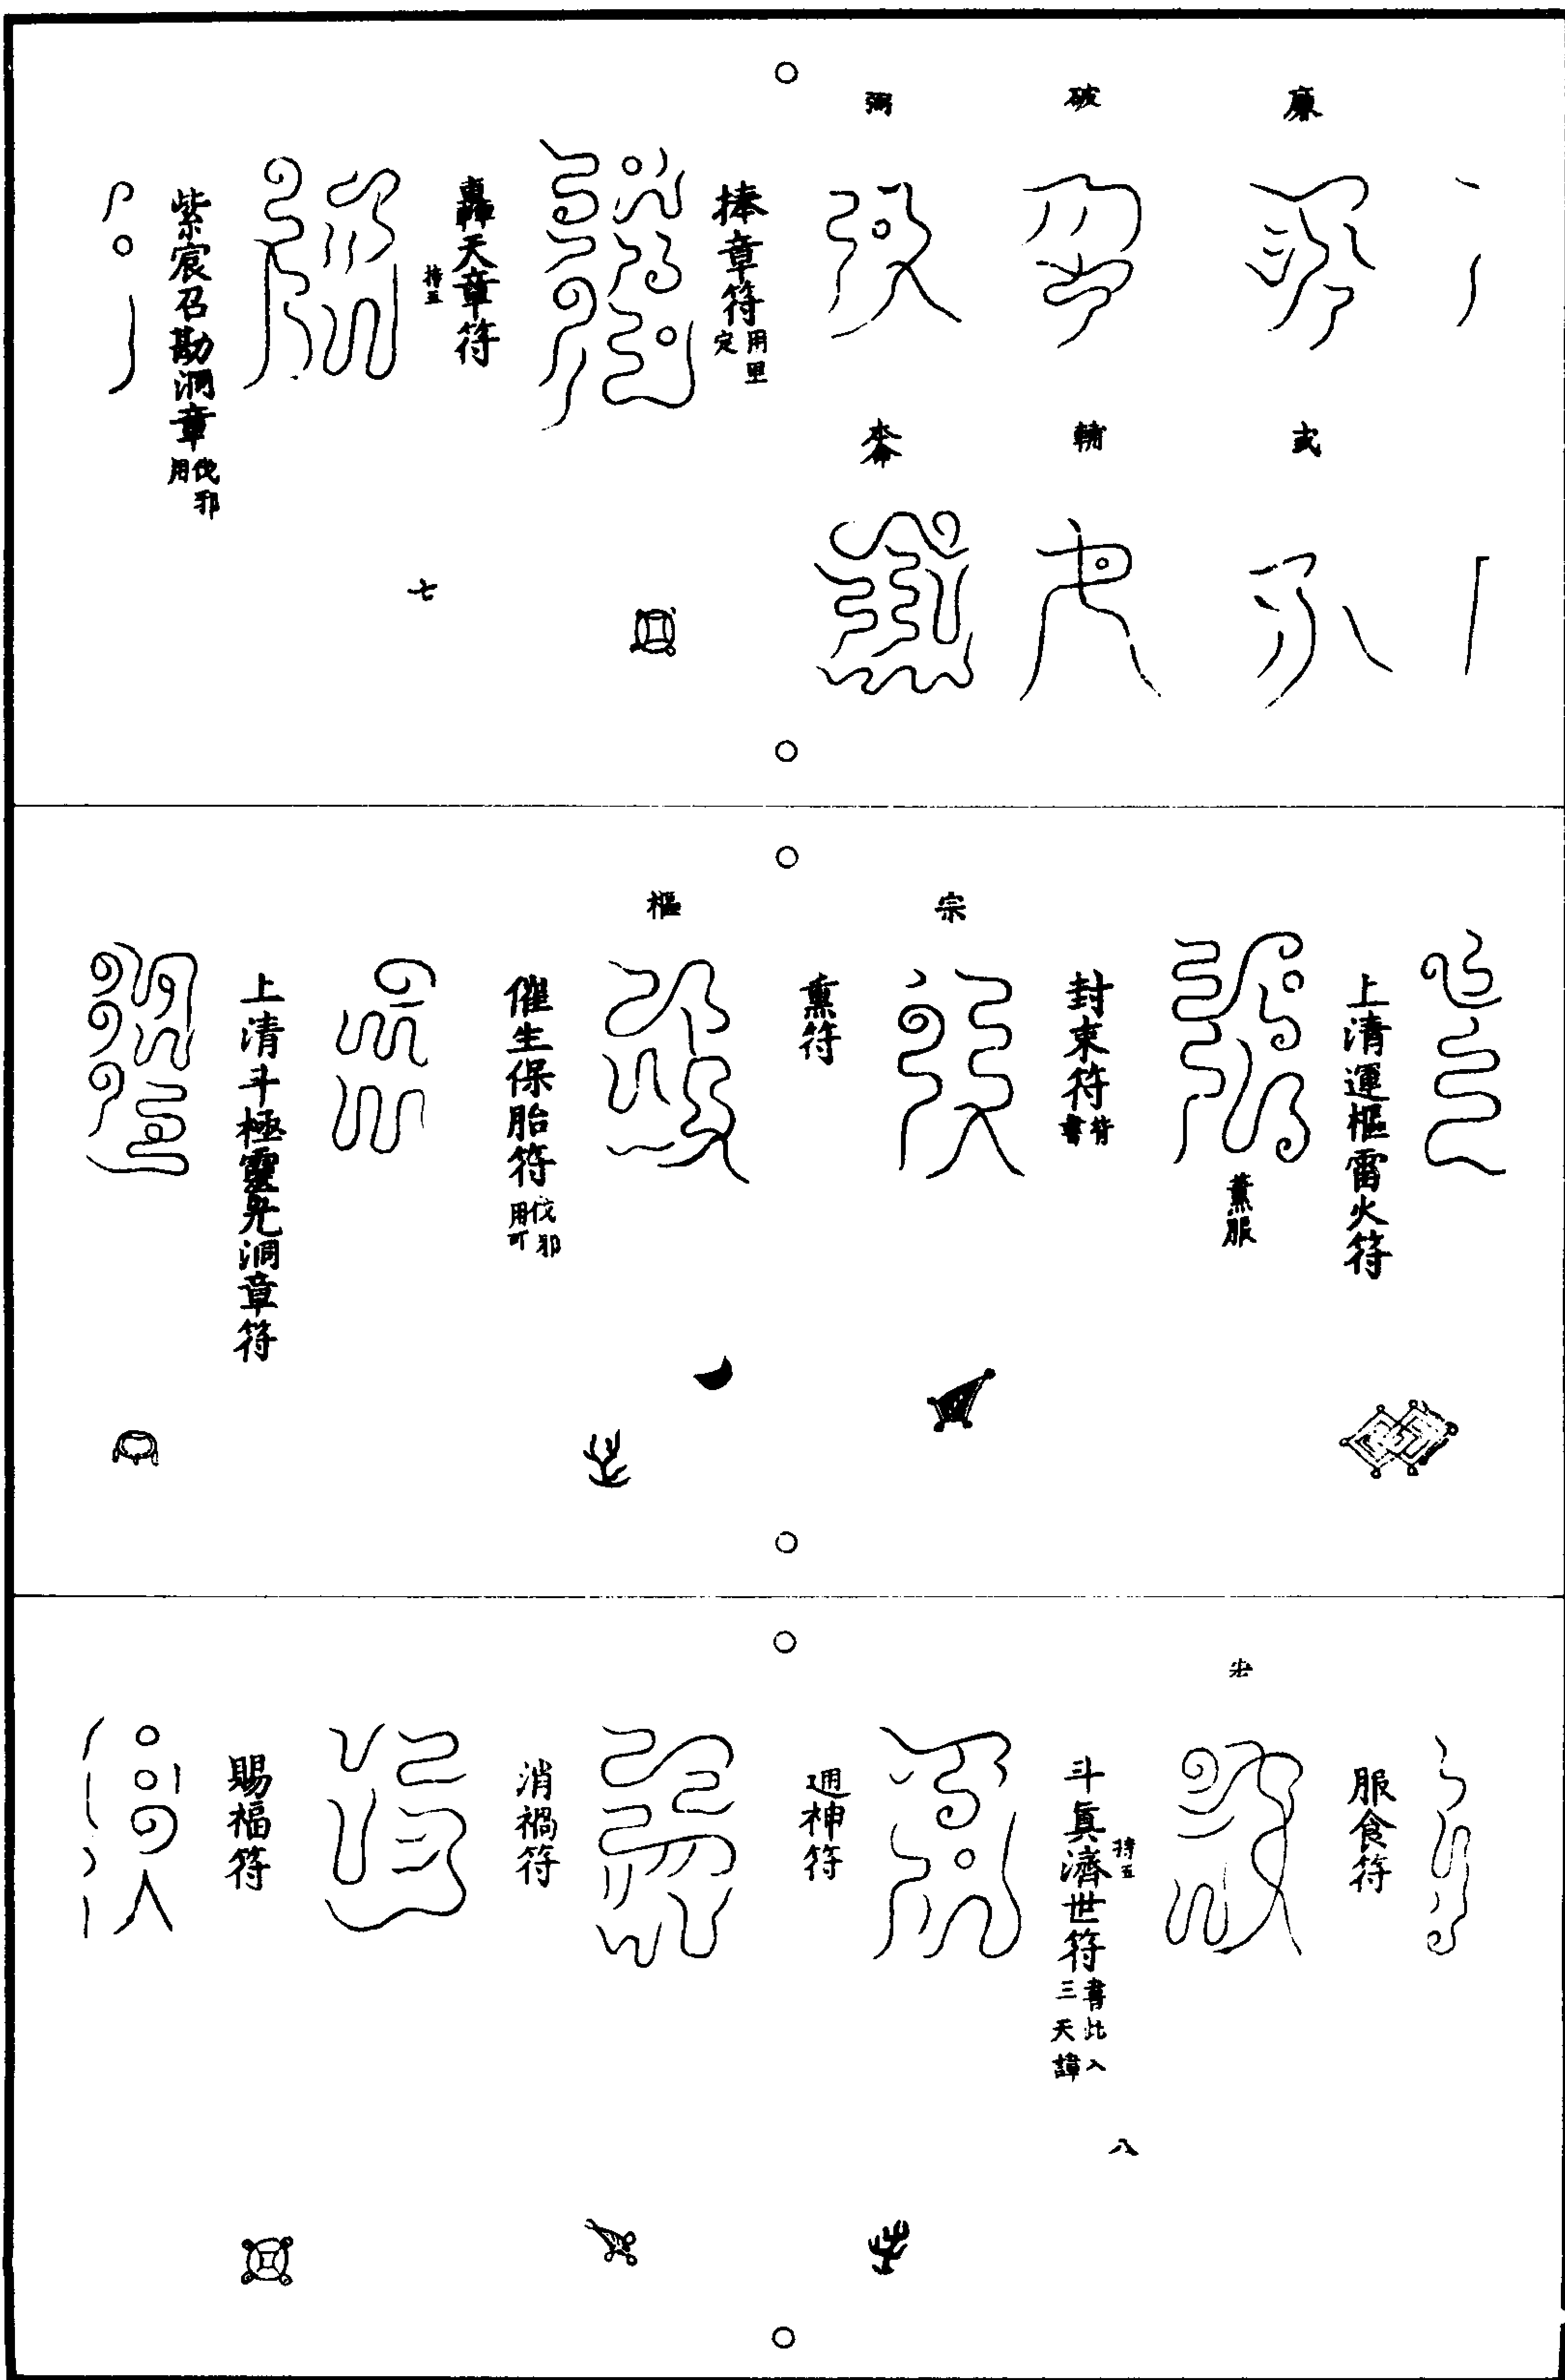 廉
武
破
輔
弼
捧章符
用里
定
轟天章符
持五
七
紫宸召勘洞章
伐邪
用
上清運樞雷火符
薰服
封束符
符
書
宗
薰符
樞
催生保胎符
伐邪
可用
上清斗極靈光洞章符
服食符
斗真濟世符
持五
書此入
三天諱
八
通神符
消禍符
賜福符